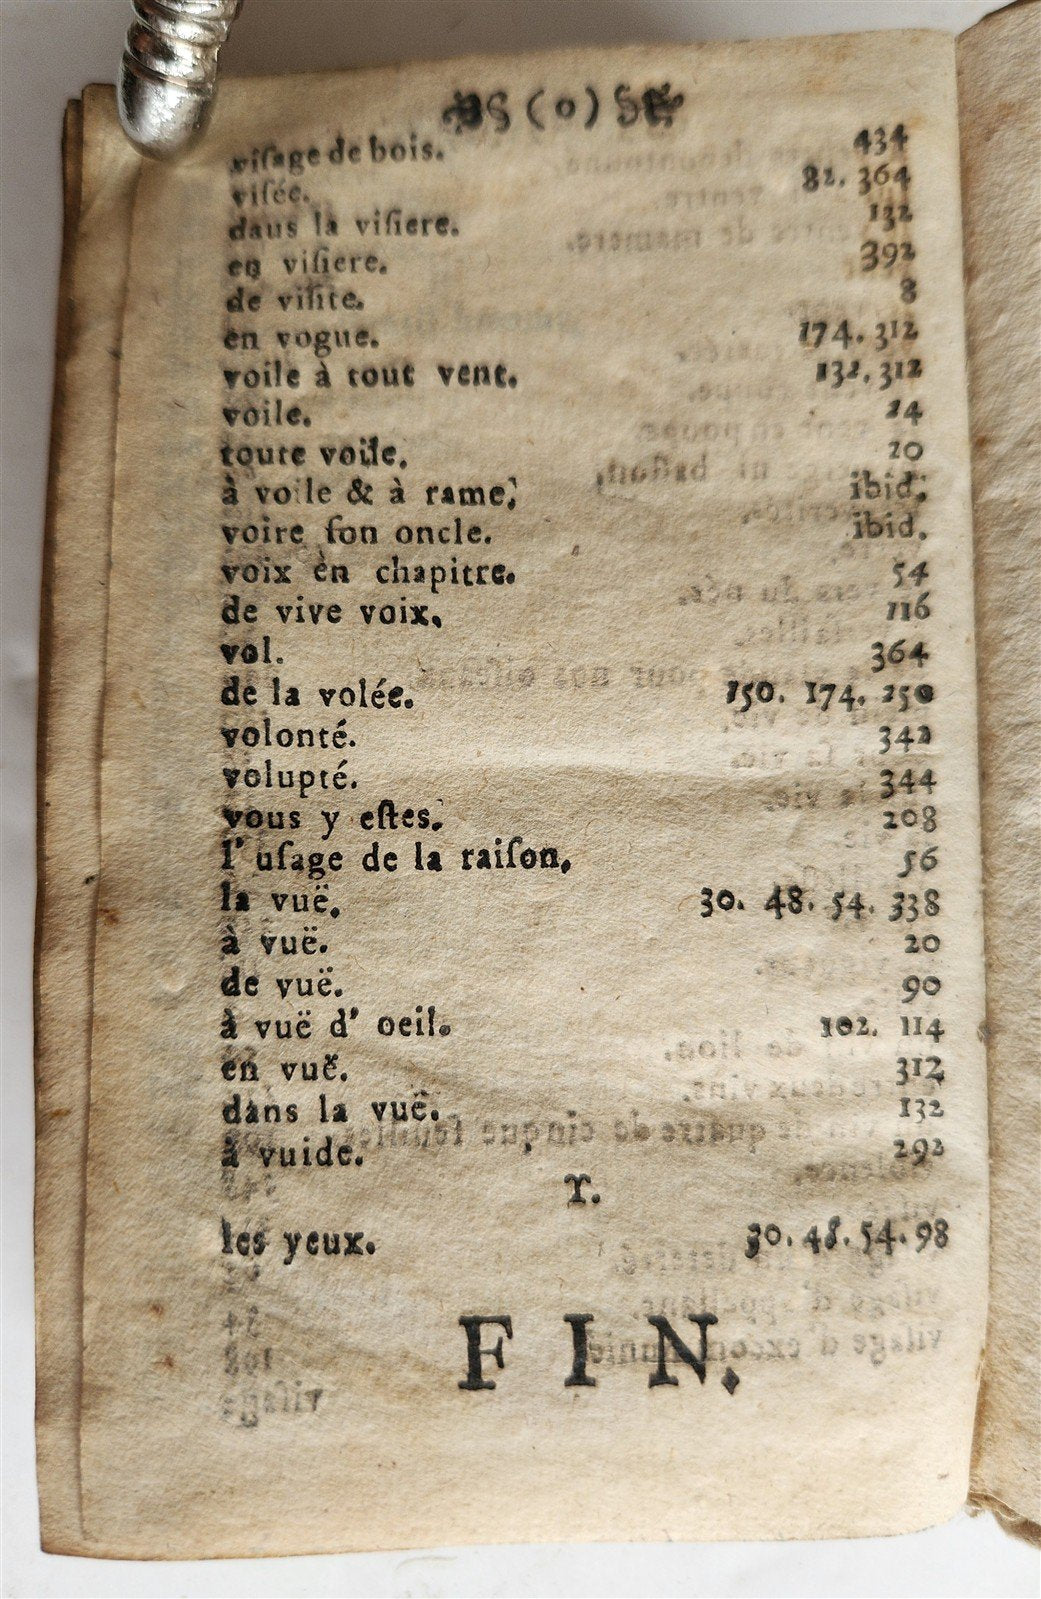 (o)
viſage de bois. 434
viſée. 82. 364
daus la viſiere. 132
en viſiere. 392
de viſite. 8
en vogue. 174. 312
voile à tout vent. 132. 312
voile. 24
toute voile. 20
à voile & à rame. ibid.
voire ſon oncle. ibid.
voix èn chapitre. 54
de vive voix. 116
vol. 364
de la volée. 150. 174. 250
volonté. 342
volupté. 344
vous y eſtes. 208
l' uſage de la raiſon. 56
la vuë. 30. 48. 54. 338
à vuë. 20
de vuë. 90
à vuë d' oeil. 102. 114
en vuë. 312
dans la vuë. 132
à vuide. 292
Y.
les yeux. 30. 48. 54. 98
FIN.